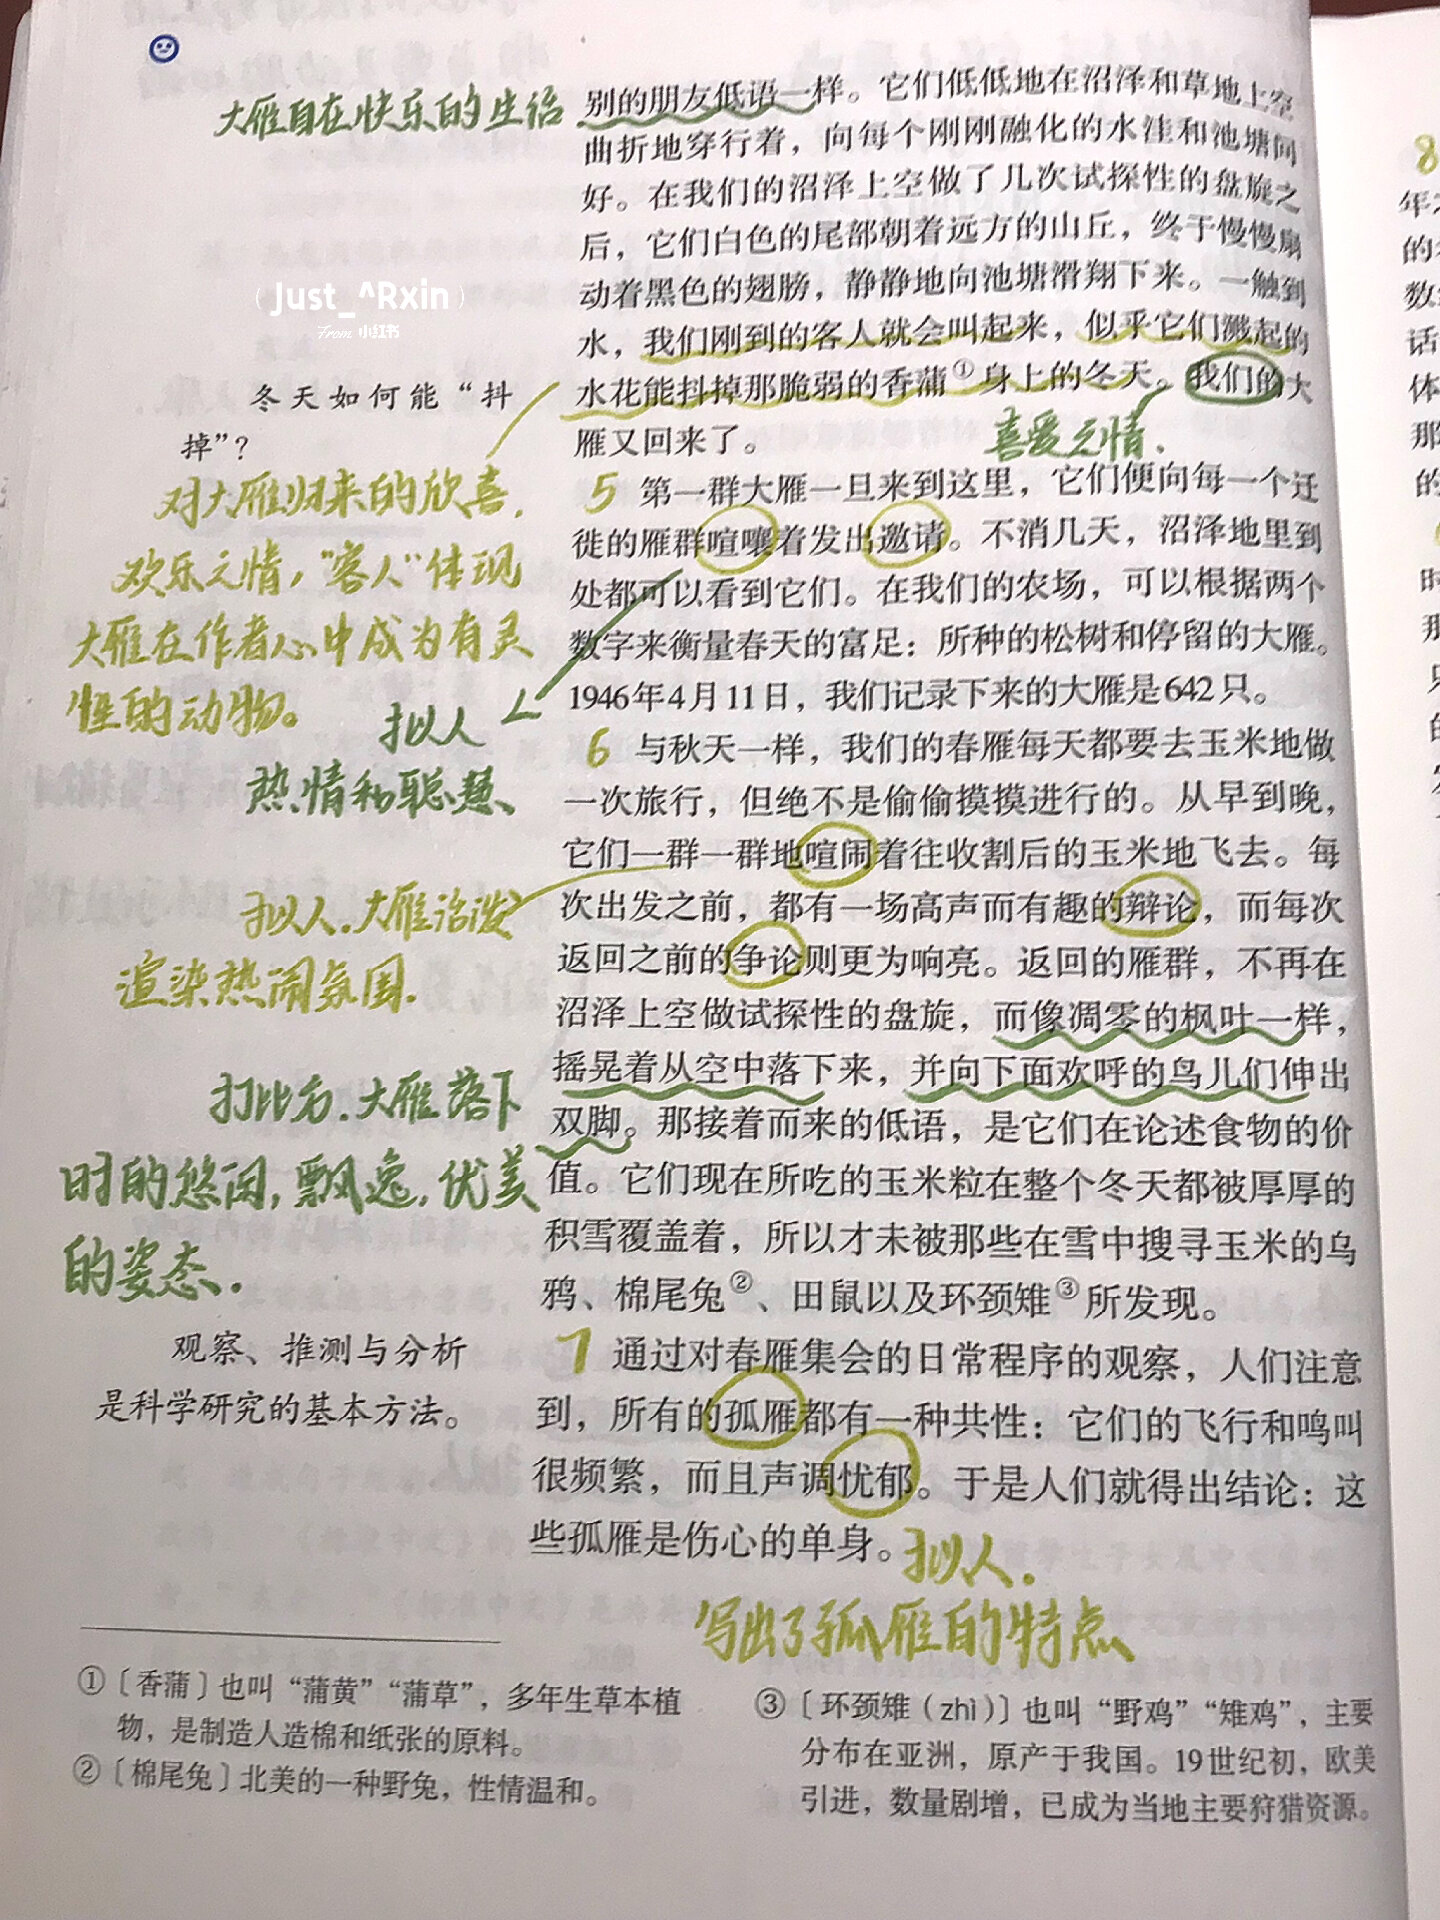 大雁自在快乐的生活
别的朋友低语一样。它们低低地在沼泽和草地上空
曲折地穿行着，向每个刚刚融化的水洼和池塘问
好。在我们的沼泽上空做了几次试探性的盘旋之
后，它们白色的尾部朝着远方的山丘，终于慢慢扇
动着黑色的翅膀，静静地向池塘滑翔下来。一触到
水，我们刚到的客人就会叫起来，似乎它们溅起的
水花能抖掉那脆弱的香蒲①身上的冬天。我们的大
雁又回来了。
喜爱之情.
Just_^Rxin
From 小红书
冬天如何能“抖
掉”？
对大雁归来的欣喜.
欢乐之情，“客人”体现
大雁在作者心中成为有灵
性的动物。
拟人
热情和聪慧、
5 第一群大雁一旦来到这里，它们便向每一个迁
徙的雁群喧嚷着发出邀请。不消几天，沼泽地里到
处都可以看到它们。在我们的农场，可以根据两个
数字来衡量春天的富足：所种的松树和停留的大雁。
1946年4月11日，我们记录下来的大雁是642只。
6 与秋天一样，我们的春雁每天都要去玉米地做
一次旅行，但绝不是偷偷摸摸进行的。从早到晚，
它们一群一群地喧闹着往收割后的玉米地飞去。每
次出发之前，都有一场高声而有趣的辩论，而每次
返回之前的争论则更为响亮。返回的雁群，不再在
沼泽上空做试探性的盘旋，而像凋零的枫叶一样，
摇晃着从空中落下来，并向下面欢呼的鸟儿们伸出
双脚。那接着而来的低语，是它们在论述食物的价
值。它们现在所吃的玉米粒在整个冬天都被厚厚的
积雪覆盖着，所以才未被那些在雪中搜寻玉米的乌
鸦、棉尾兔②、田鼠以及环颈雉③所发现。
拟人.大雁活泼
渲染热闹氛围.
打比方.大雁落下
时的悠闲,飘逸,优美
的姿态.
观察、推测与分析
是科学研究的基本方法。
7 通过对春雁集会的日常程序的观察，人们注意
到，所有的孤雁都有一种共性：它们的飞行和鸣叫
很频繁，而且声调忧郁。于是人们就得出结论：这
些孤雁是伤心的单身。
拟人.
写出了孤雁的特点
①〔香蒲〕也叫“蒲黄”“蒲草”，多年生草本植
物，是制造人造棉和纸张的原料。
②〔棉尾兔〕北美的一种野兔，性情温和。
③〔环颈雉（zhì）〕也叫“野鸡”“雉鸡”，主要
分布在亚洲，原产于我国。19世纪初，欧美
引进，数量剧增，已成为当地主要狩猎资源。
8
年
的
数
话
体
那
的
时